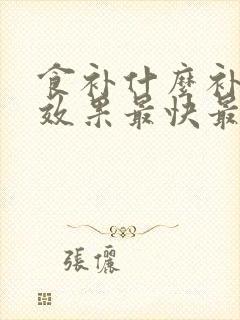 食补什麽补
效果最快最
張儷